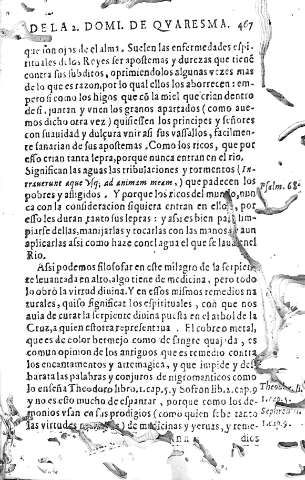 DE LA 2. DOMI. DE QVARESMA. 467
que son ojos de el alma. Suelen las enfermedades espi-
rituales de los Reyes ser apostemas y durezas que tienē
contra sus subditos, oprimiendolos algunas vezes mas
de lo que es razon, por lo qual ellos los aborrecen: em-
pero si como los higos que cō la miel que crian dentro
de si, juntan y vnen los granos apartados (como aue-
mos dicho otra vez) quisiessen los principes y señores
con suauidad y dulçura vnir a si sus vassallos, facilmen-
te sanarian de sus apostemas. Como los ricos, que por
esso crian tanta lepra, porque nunca entran en el rio.
Significan las aguas las tribulaciones y tormentos (In-
trauerunt aquæ vsq; ad animam meam) que padecen los
pobres y afligidos. Y porque los ricos del mundo, nūca
con la consideracion siquiera entran en ellos, por
esso les duran tanto sus lepras: y assi es bien para lim-
piarse dellas, manijarlas y tocarlas con las manos, aun
aplicarlas assi como haze con el agua el que se laua en el
Rio.
Psalm. 68.
Assi podemos filosofar en este milagro de la serpiēte
leuantada en alto, algo tiene de medicina, pero todo
lo obró la virtud diuina. Y en essos mismos remedios na-
turales, quiso significar los espirituales, con que nos
auia de curar la serpiente diuina puesta en el arbol de la
Cruz, a quien estotra representaua. El cobre o metal,
que es de color bermejo como de sangre quajada, es
comun opinon de los antiguos que es remedio contra
los encantamentos y arte magica, y que impide y des-
barata las palabras y conjuros de nigromanticos como
lo enseña Theodoro libro. 1. cap. 5. y Sofron lib. 2. cap. 9
y no es esto mucho de espantar, porque como los de-
monios vsan en sus prodigios (como quien sabe tanto
las virtudes) de medicinas y yeruas, y reme-
Theodor. li.
1. cap. 5.
dios